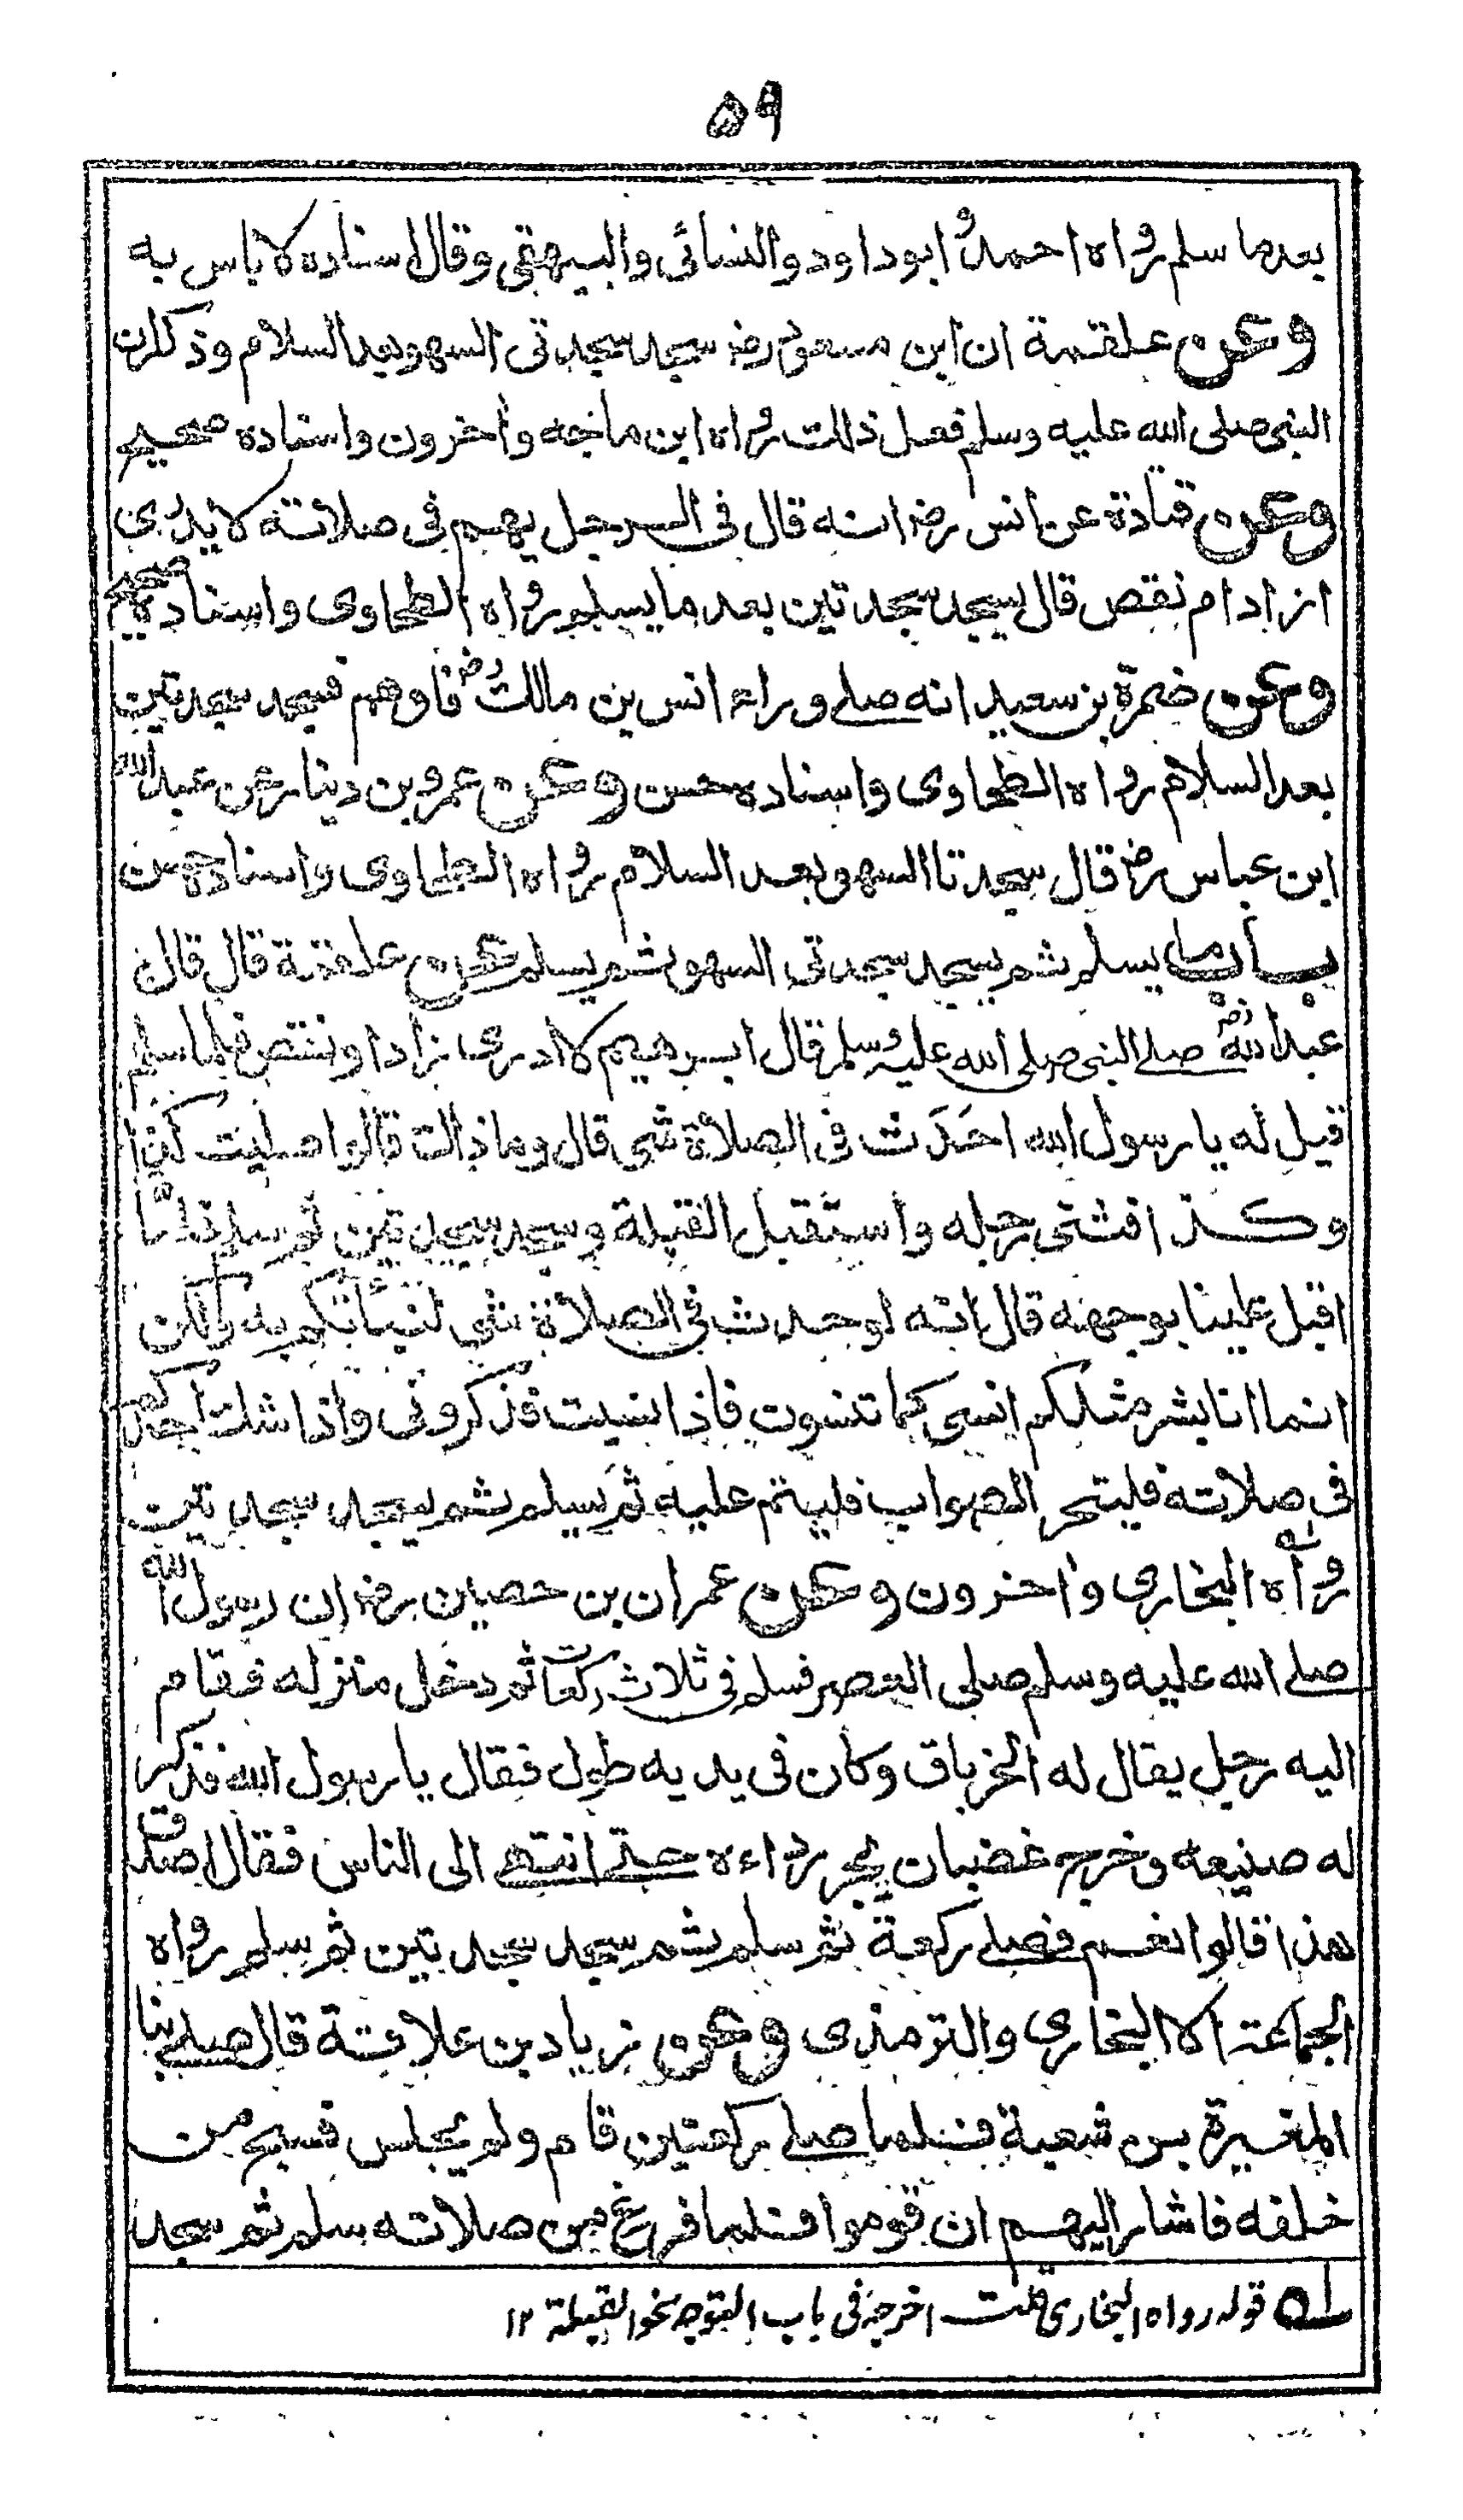 ٥٩
بعدما سلم رواه احمد و ابوداود والنسائى والبيهقى وقال اسناده لاباس به
وعن علقمة ان ابن مسعود رض سجد سجدتى السهو بعد السلام وذكر ان
النبى صلى الله عليه وسلم فعل ذلك رواه ابن ماجه واخرون واسناده صحيح
وعن قتادة عن انس رض انه قال فى الرجل يهم فى صلاته لا يدرى
ازاد ام نقص قال يسجد سجدتين بعد ما يسلم رواه الطحاوى واسناده صحيح
وعن ضمرة بن سعيد انه صلى وراء انس بن مالك رض فاوهم فسجد سجدتين
بعد السلام رواه الطحاوى واسناده حسن وعن عمرو بن دينار عن عبد الله
ابن عباس رض قال سجدتا السهو بعد السلام رواه الطحاوى واسناده حسن
باب ما يسلم ثم يسجد سجدتى السهو ثم يسلم عن علقمة قال قال
عبد الله رض صلى النبى صلى الله عليه وسلم قال ابرهيم لا ادرى زاد او نقص فلما سلم
قيل له يا رسول الله احَدَث فى الصلاة شى قال وما ذاك قالوا صليت كذا
وكذا فثنى رجله واستقبل القبلة وسجد سجدتين ثم سلم فلما
اقبل علينا بوجهه قال انه لو حدث فى الصلاة شى لنبأتكم به ولكن
انما انا بشر مثلكم انسى كما تنسون فاذا نسيت فذكرونى واذا شك احدكم
فى صلاته فليتحر الصواب فليتم عليه ثم يسلم ثم يسجد سجدتين
رواه البخارى واخرون وعن عمران بن حصين رض ان رسول الله
صلى الله عليه وسلم صلى العصر فسلم فى ثلاث ركعات ثم دخل منزله فقام
اليه رجل يقال له الخرباق وكان فى يديه طول فقال يا رسول الله فذكر
له صنيعه وخرج غضبان يجر رداءه حتى انتهى الى الناس فقال اصدق
هذا قالوا نعم فصلى ركعة ثم سلم ثم سجد سجدتين ثم سلم رواه
الجماعة الا البخارى والترمذى وعن زياد بن علاقة قال صلى بنا
المغيرة بن شعبة فلما صلى ركعتين قام ولم يجلس فسبح من
خلفه فاشار اليهم ان قوموا فلما فرغ من صلاته سلم ثم سجد
له قوله رواه البخارى قلت اخرجه فى باب التوجه نحو القبلة ١٢